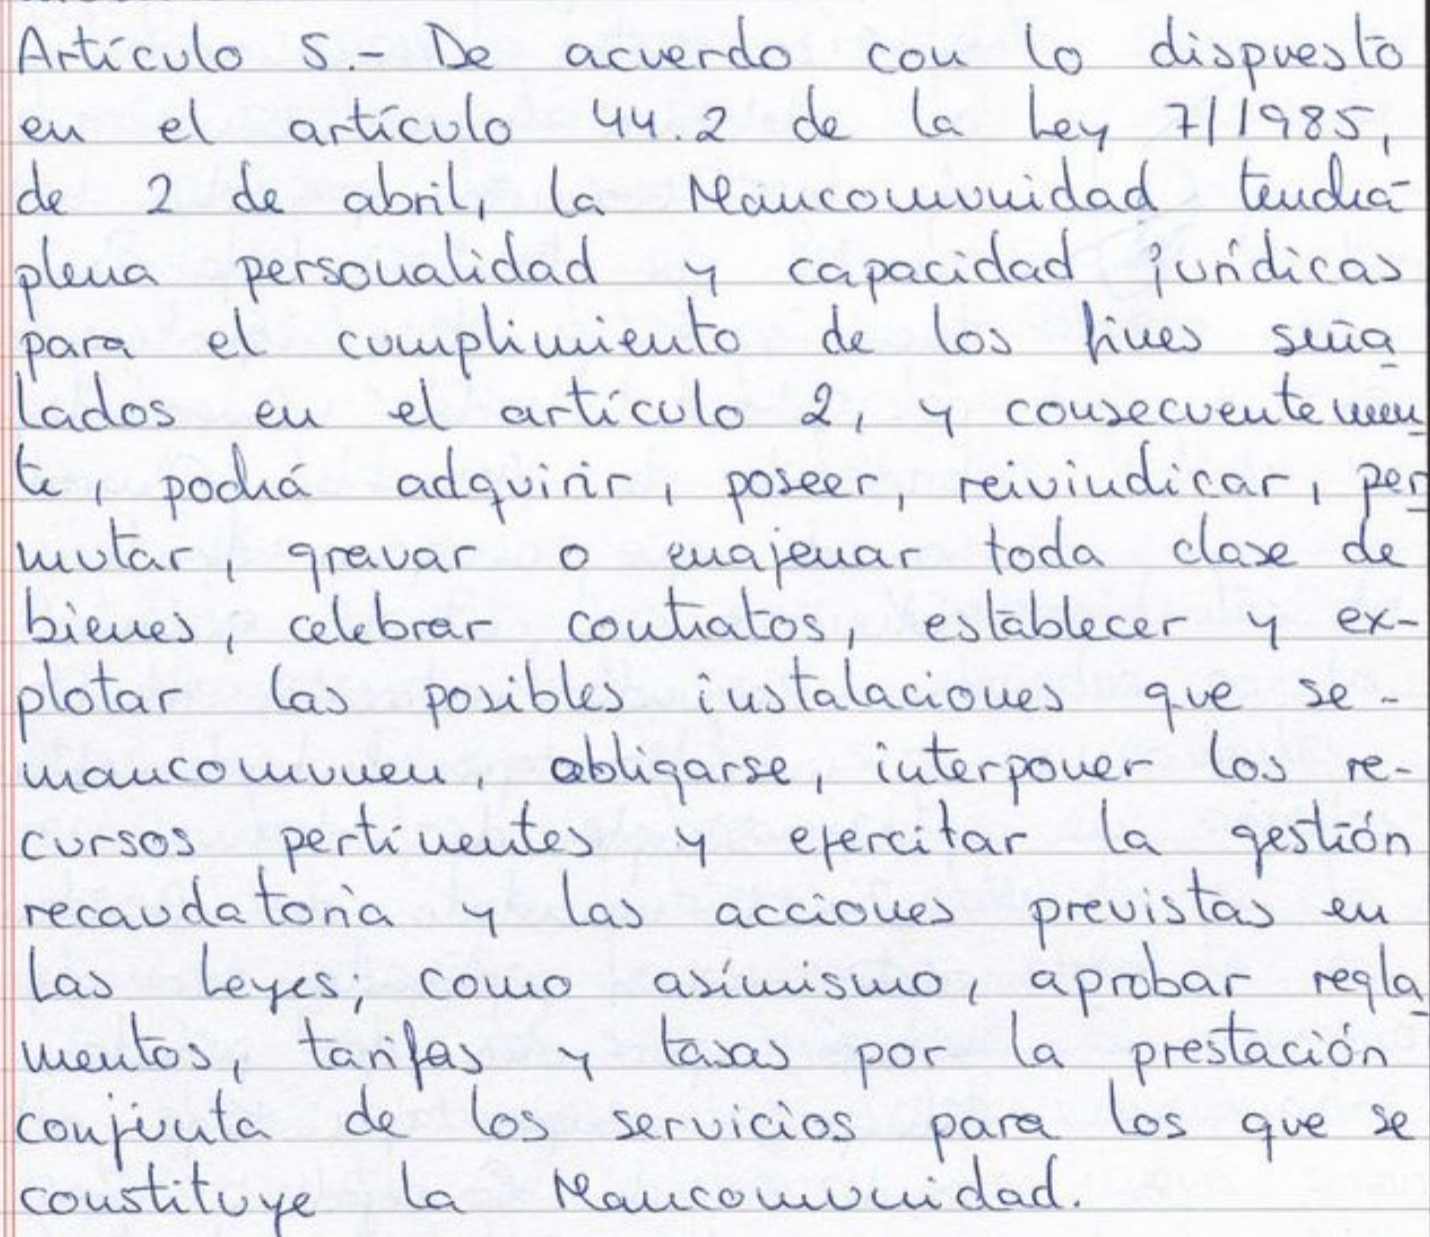 Artículo 5.- De acuerdo con lo dispuesto
en el artículo 44.2 de la Ley 7/1985,
de 2 de abril, la Mancomunidad tendrá
plena personalidad y capacidad jurídicas
para el cumplimiento de los fines seña
lados en el artículo 2, y consecuentemen
te, podrá adquirir, poseer, reivindicar, per
mutar, gravar o enajenar toda clase de
bienes, celebrar contratos, establecer y ex-
plotar las posibles instalaciones que se-
mancomunen, obligarse, interponer los re-
cursos pertinentes y ejercitar la gestión
recaudatoria y las acciones previstas en
las Leyes; como asímismo, aprobar regla
mentos, tarifas y tasas por la prestación
conjunta de los servicios para los que se
constituye la Mancomunidad.